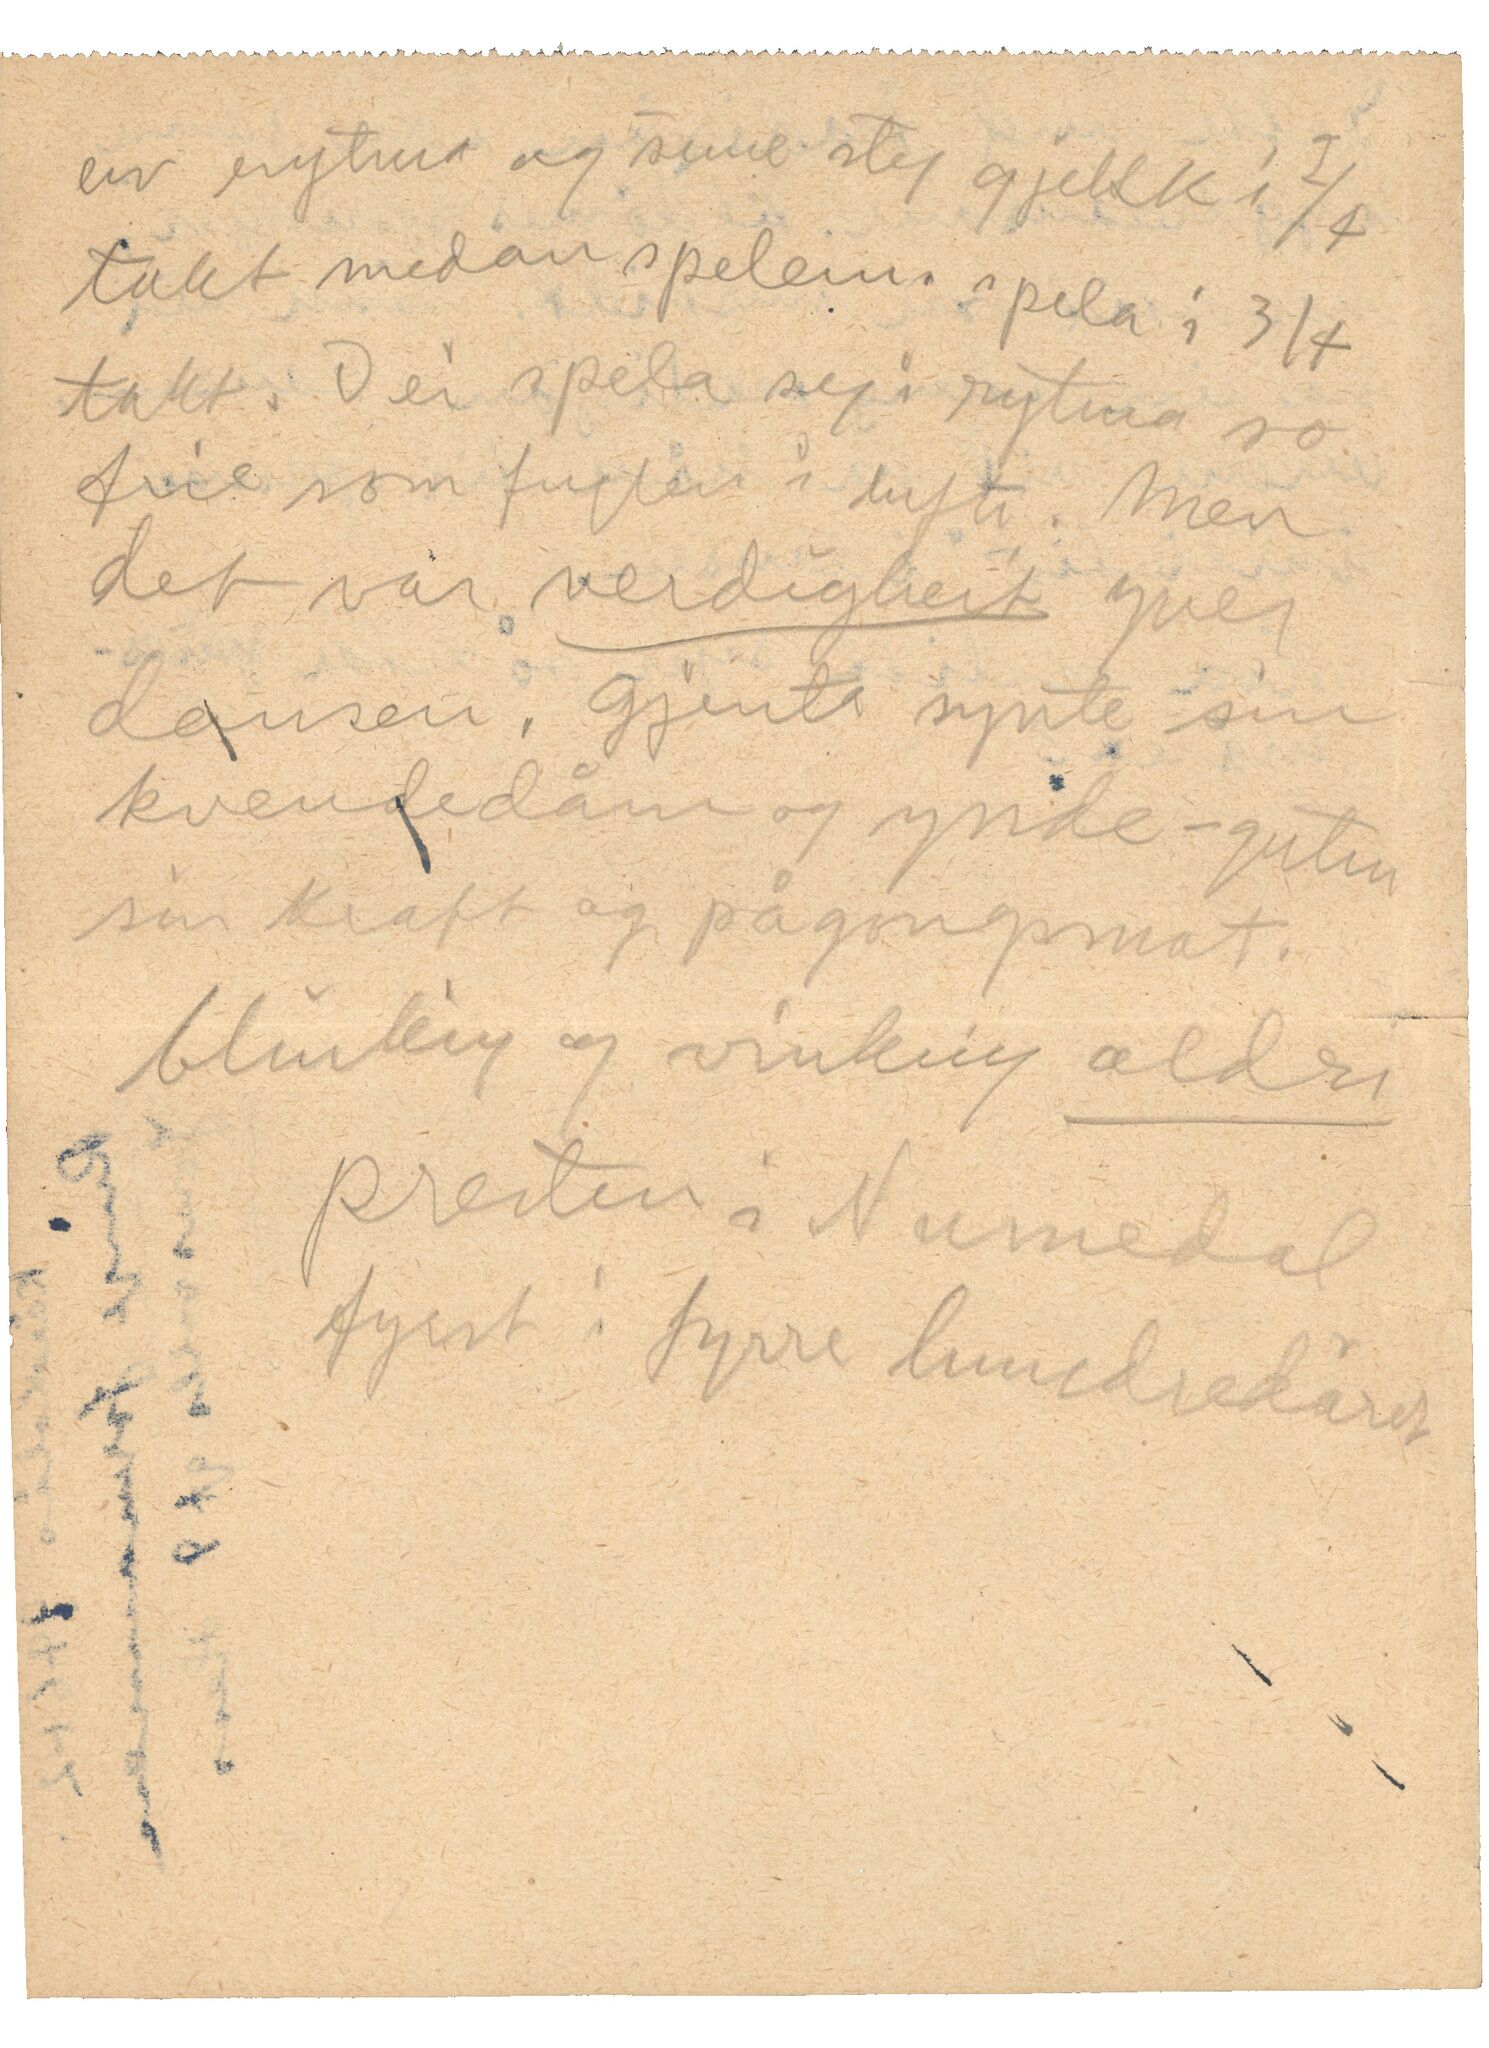 ein rytma og sume steg gjekk i 2/4
takt medan spelem. spela i 3/4
takt. Dei spela seg i rytma so
frie som fuglen i lufti. Men
det var verdigheit yver
dansen. Gjenta synte sin
kvendedåm og ynde - guten
sin kraft og pågongsmot.
blinking og vinking aldri
presten i Numedal
fyrst i fyrre hundredåret